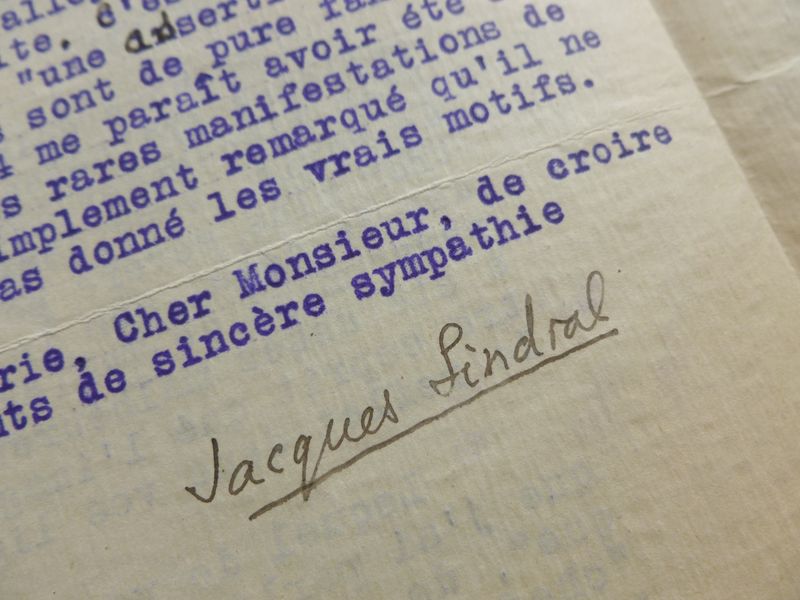 c'est
"une insertion
sont de pure
me paraît avoir été
rares manifestations de
simplement remarqué qu'il ne
pas donné les vrais motifs.
rie, Cher Monsieur, de croire
nts de sincère sympathie
Jacques Sindral